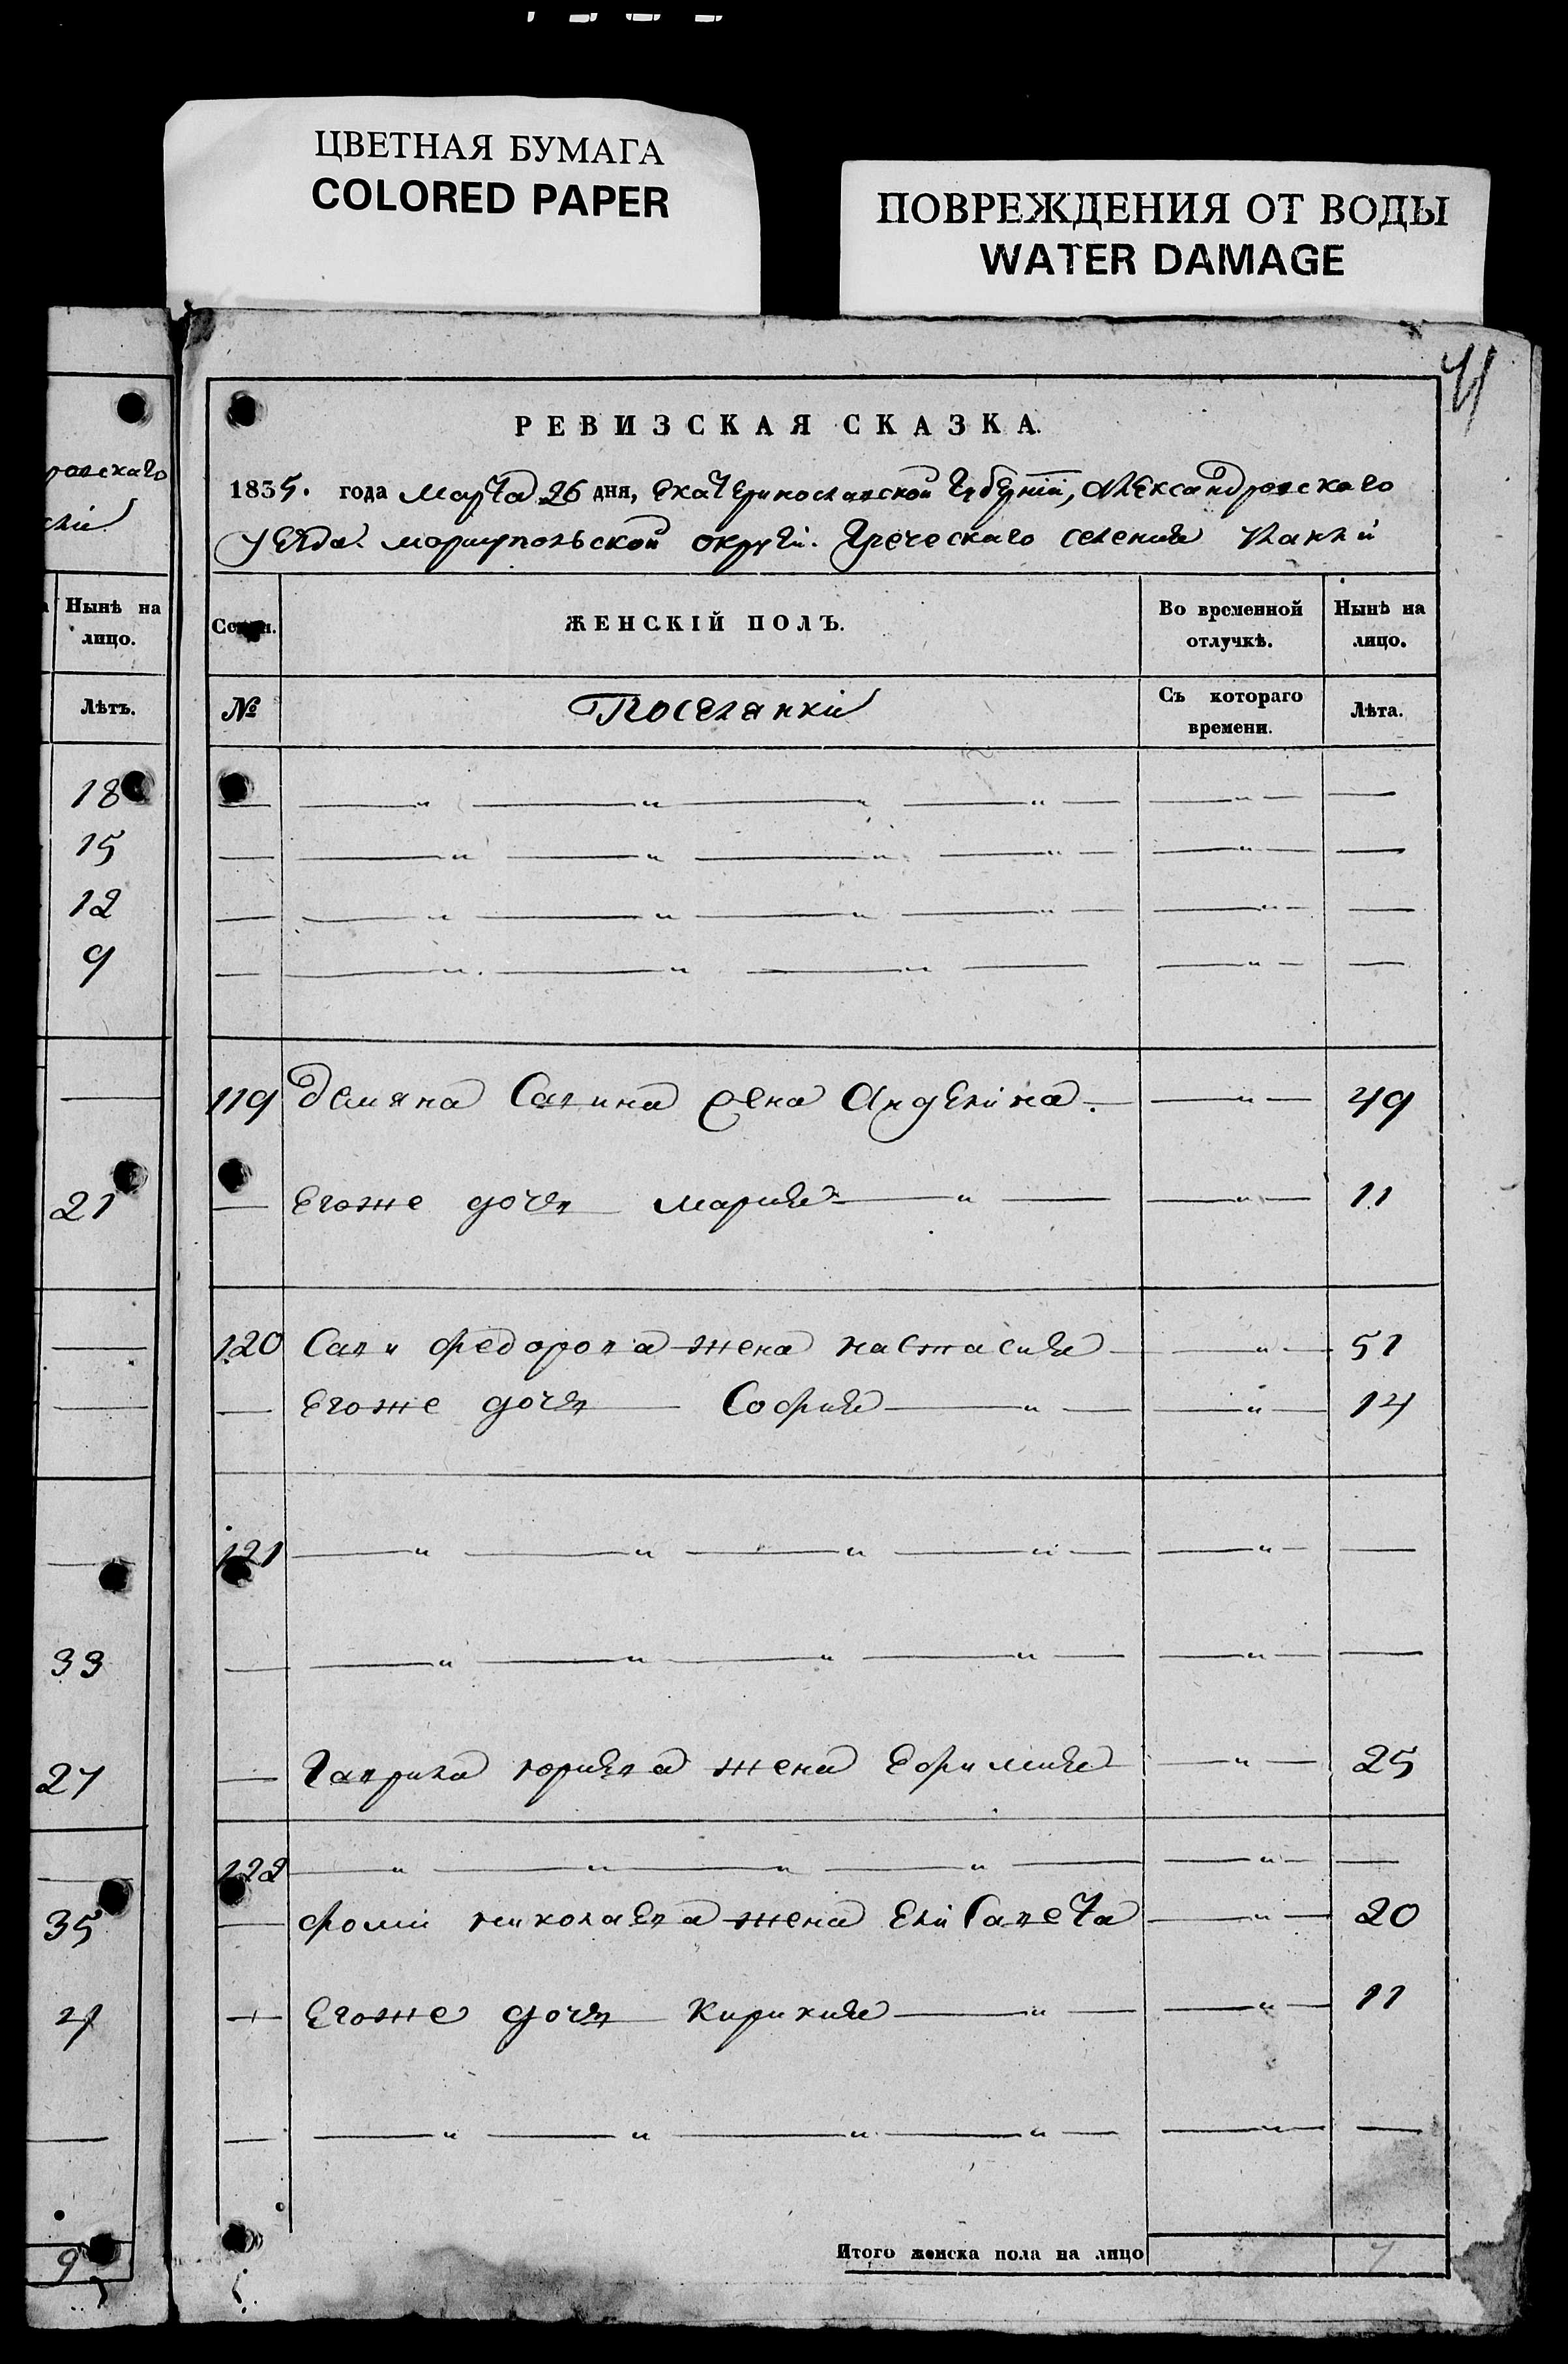 ЦВЕТНАЯ БУМАГА
COLORED PAPER
ПОВРЕЖДЕНИЯ ОТ ВОДЫ
WATER DAMAGE
РЕВИЗСКАЯ СКАЗКА.
1835. года Марта 26 дня, Екатеринославской Губерніи, Александровскаго
уезда. мариупольской округи. Греческаго селения
Нынѣ на лицо.
Лѣтъ.
18
15
12
9
21
33
27
35
4
9
Семьи. ЖЕНСКІЙ ПОЛЪ. Во временной отлучкѣ. Нынѣ на лицо.
№ Поселянки Съ котораго времени. Лѣта.
119 Демяна Савина жена Ангелина 49
Егоже дочь мария 11
120 Сави Федорова жена настасия 51
Егоже дочь София 14
121
Гаврила юриева жена Ефимия 25
122
Фоми николаева жена Елисавета 20
Егоже дочь Кирикия 11
Итого женска пола на лицо 7